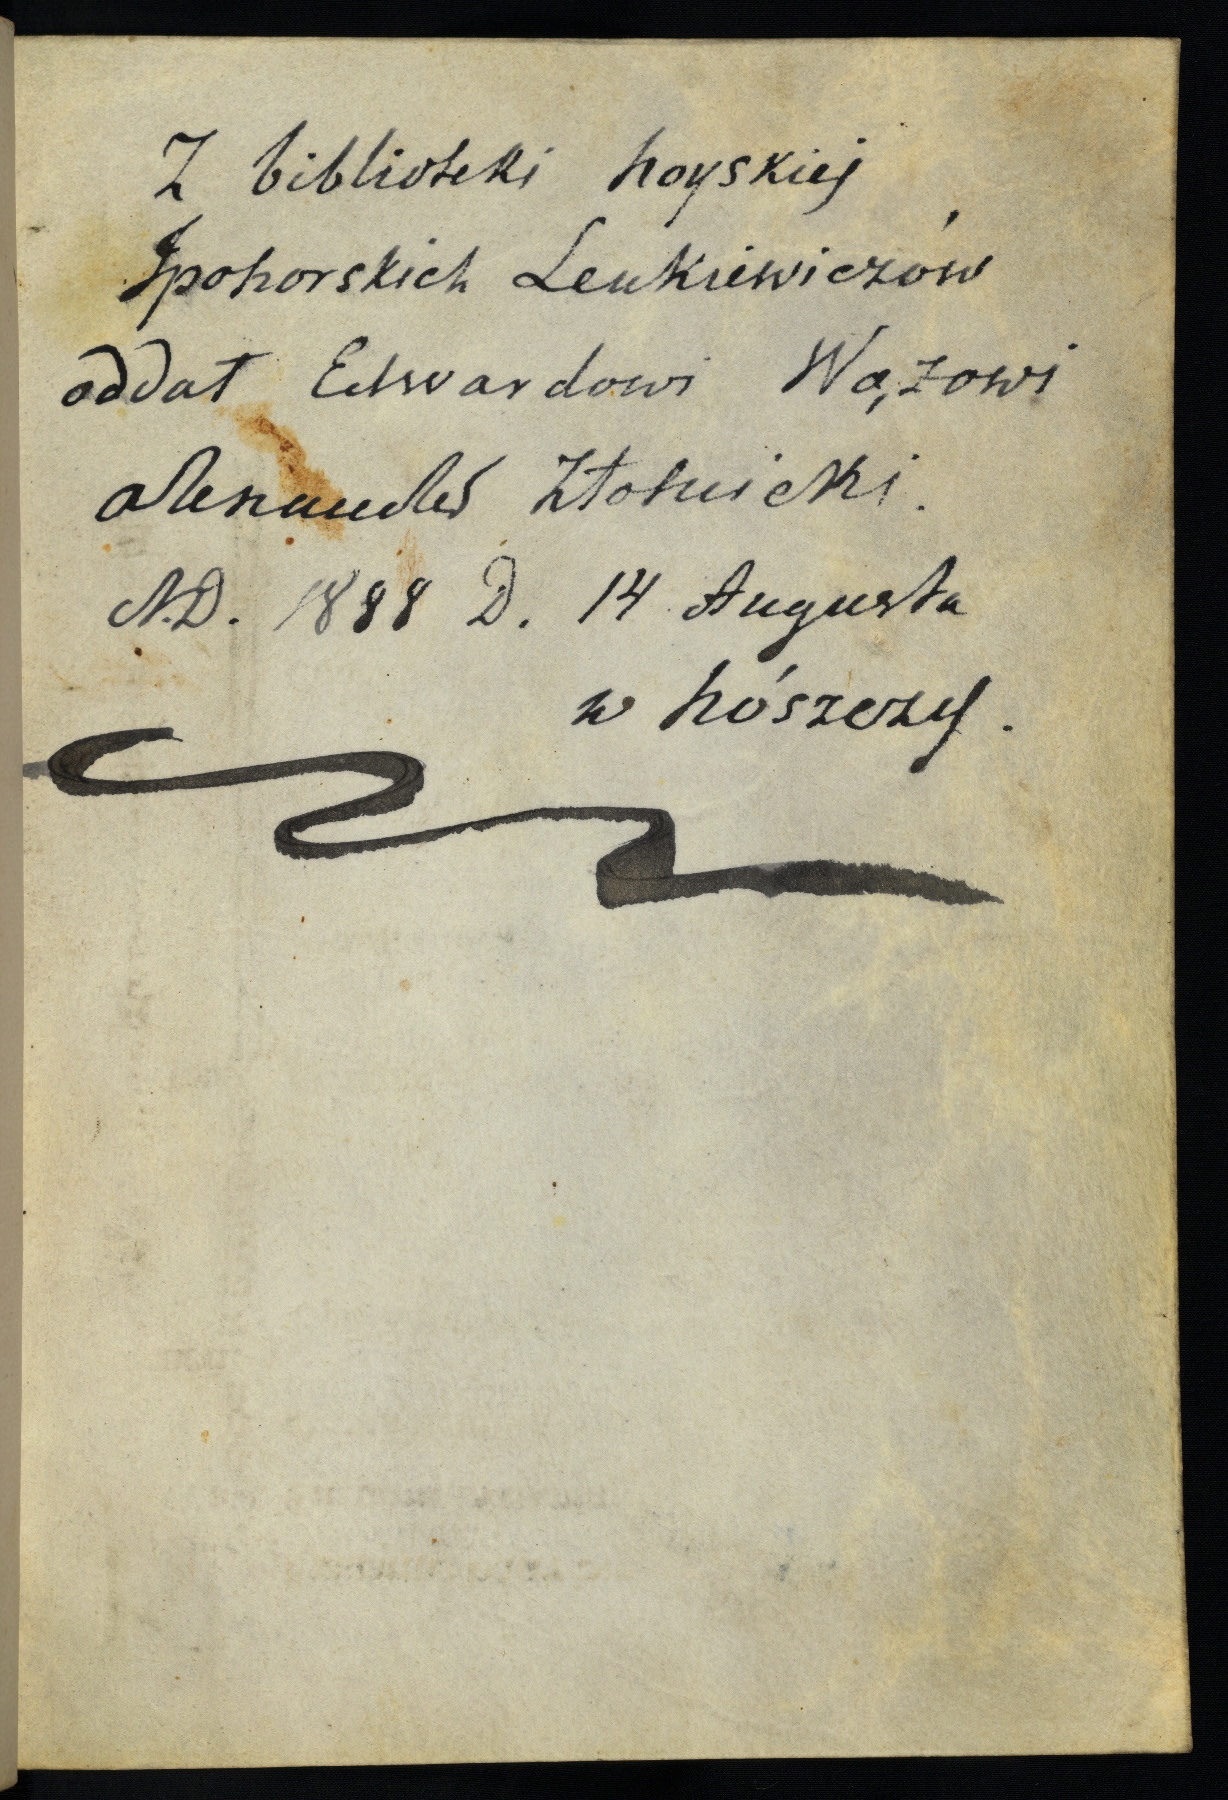 Z biblioteki hoyskiej
Ipohorskich Lenkiewiczów
oddał Edwardowi Wązowi
Alexander Złotnicki.
A.D. 1888 D. 14 Augusta
w hószczy.